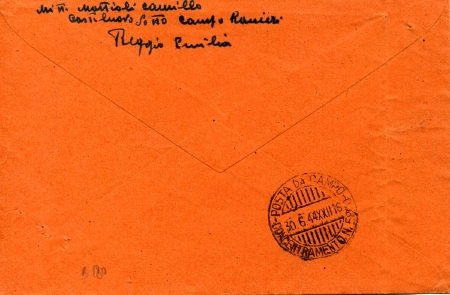 Mitt. Mattioli Camillo
Sotto Campo Ranieri
Reggio Emilia
POSTA DA CAMPO
30.6.44 XXII 16
CONCENTRAMENTO N.